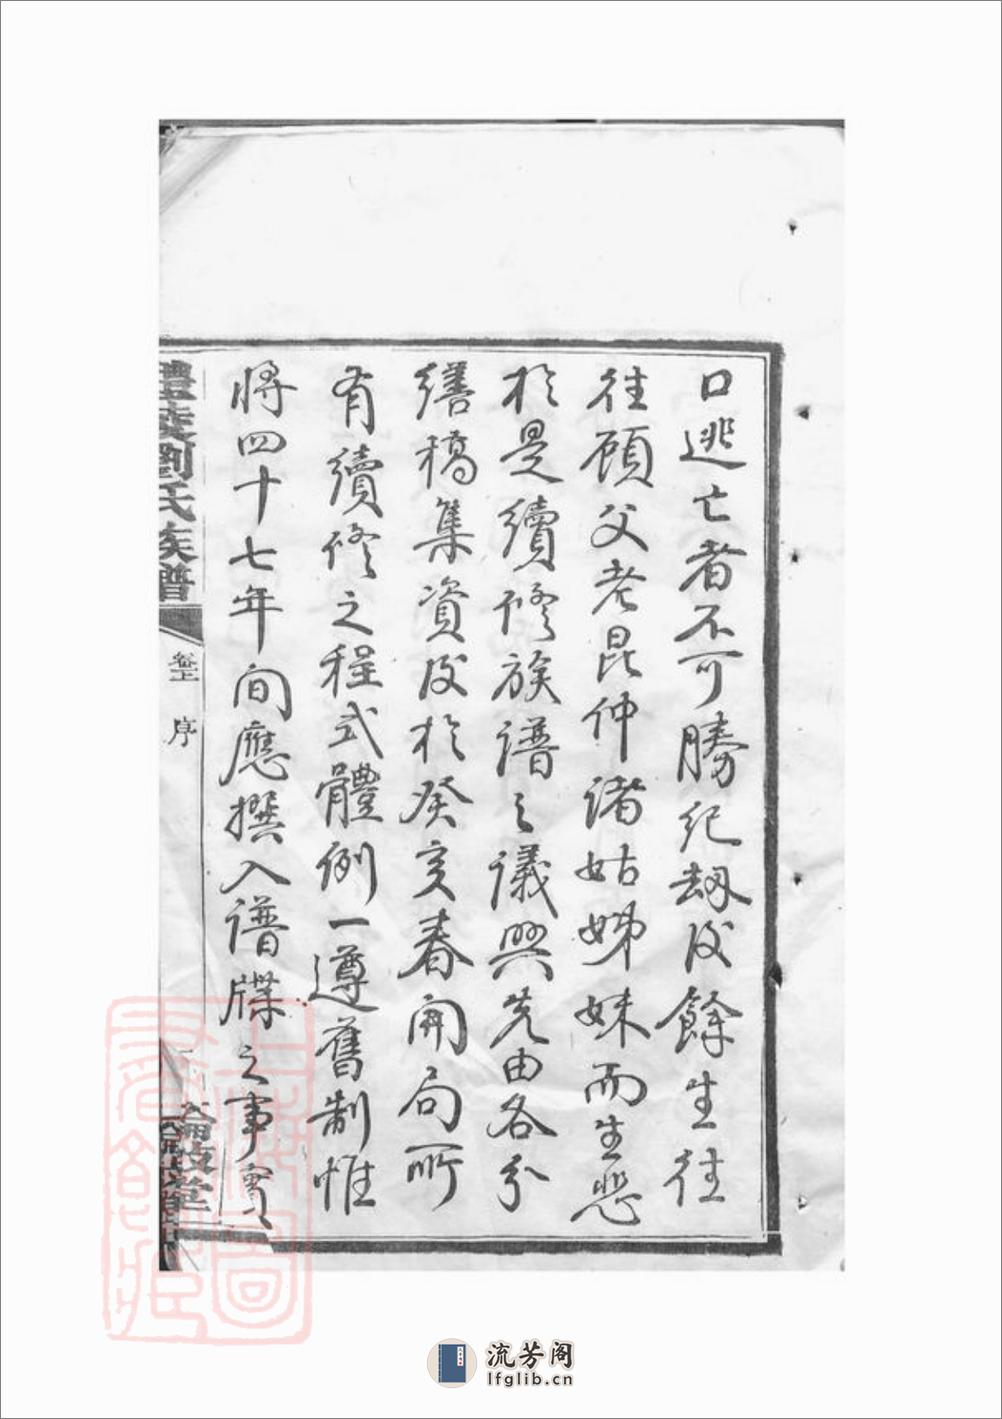 口逃亡者不可勝紀劫後餘生往
往顧父老昆仲諸姑姊妹而生悲
於是續修族譜之議興先由各分
繕稿集資後於癸亥春開局所
有續修之程式體例一遵舊制惟
將四十七年間應撰入譜牒之事實
醴陵劉氏族譜
卷上
序
流芳阁
lfglib.cn